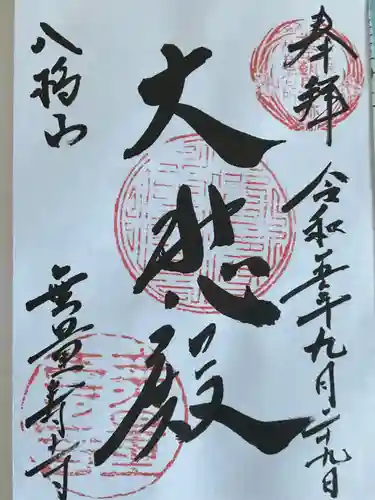 奉拝
令和五年九月二十九日
大悲殿
八橋山
無量寿寺